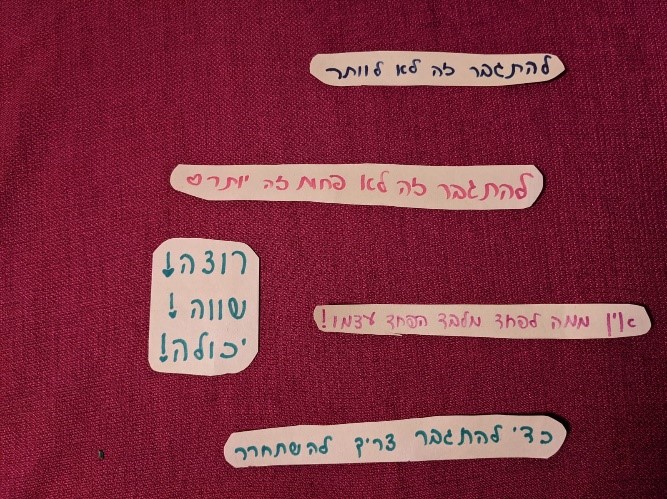 להתגבר זה לא לוותר
להתגבר זה לא פחות זה יותר♡
רוצה!
שווה!
יכולה!
אין ממה לפחד מלבד הפחד עצמו!
כדי להתגבר צריך להשתחרר